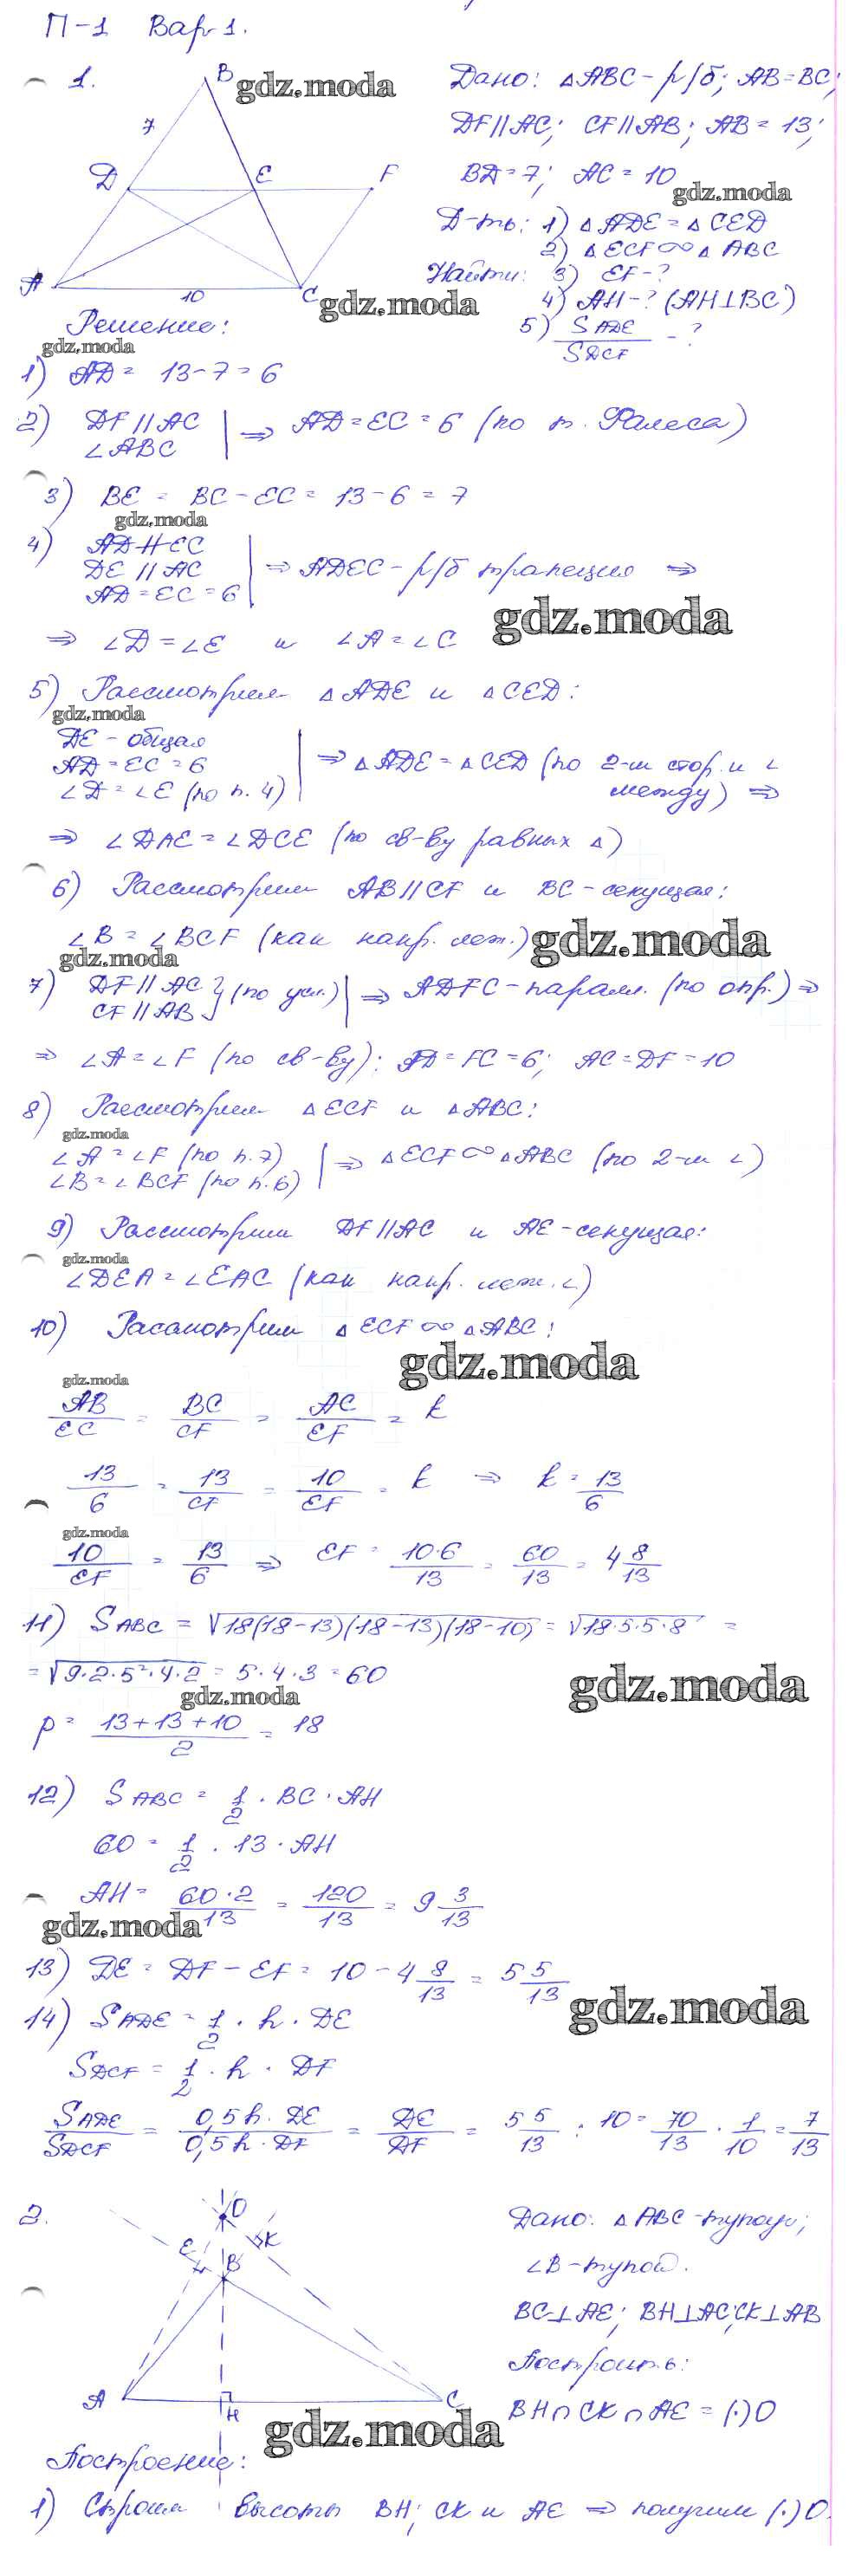 П-1 Вар 1.
1.
B
7
D
E
F
A
10
C
gdz.moda
Дано: △ABC - р/б; AB = BC;
DF || AC; CF || AB; AB = 13;
BD = 7; AC = 10
gdz.moda
Д-ть: 1) △ADE = △CED
2) △ECF ∞ △ABC
Найти: 3) EF - ?
4) AH - ? (AH ⊥ BC)
5) S ADE / S DCF - ?
gdz.moda
Решение:
gdz.moda
1) AD = 13 - 7 = 6
2) DF || AC
∠ABC | ⇒ AD = EC = 6 (по т. Фалеса)
3) BE = BC - EC = 13 - 6 = 7
gdz.moda
4) AD ∦ EC
DE || AC | ⇒ ADEC - р/б трапеция ⇒
AD = EC = 6
⇒ ∠D = ∠E и ∠A = ∠C
gdz.moda
5) Рассмотрим △ADE и △CED:
gdz.moda
DE - общая
AD = EC = 6 | ⇒ △ADE = △CED (по 2-м стор. и ∠
∠D = ∠E (по п. 4) между) ⇒
⇒ ∠DAE = ∠DCE (по св-ву равных △)
6) Рассмотрим AB || CF и BC - секущая:
∠B = ∠BCF (как накр. леж.)
gdz.moda
gdz.moda
7) DF || AC
CF || AB } (по усл.) | ⇒ ADFC - паралл. (по опр.) ⇒
⇒ ∠A = ∠F (по св-ву); AD = FC = 6; AC = DF = 10
8) Рассмотрим △ECF и △ABC:
gdz.moda
∠A = ∠F (по п. 7)
∠B = ∠BCF (по п. 6) | ⇒ △ECF ∞ △ABC (по 2-м ∠)
9) Рассмотрим DF || AC и AE - секущая:
gdz.moda
∠DEA = ∠EAC (как накр. леж. ∠)
10) Расмотрим △ECF ∞ △ABC:
gdz.moda
gdz.moda
AB/EC = BC/CF = AC/EF = k
13/6 = 13/CF = 10/EF = k ⇒ k = 13/6
gdz.moda
10/EF = 13/6 ⇒ EF = 10·6/13 = 60/13 = 4 8/13
11) S ABC = √18(18-13)(18-13)(18-10) = √18·5·5·8 =
= √9·2·5²·4·2 = 5·4·3 = 60
gdz.moda
gdz.moda
p = 13+13+10/2 = 18
12) S ABC = 1/2 · BC · AH
60 = 1/2 · 13 · AH
AH = 60·2/13 = 120/13 = 9 3/13
gdz.moda
13) DE = DF - EF = 10 - 4 8/13 = 5 5/13
gdz.moda
14) S ADE = 1/2 · h · DE
S DCF = 1/2 · h · DF
S ADE/S DCF = 0,5h·DE/0,5h·DF = DE/DF = 5 5/13 : 10 = 70/13 · 1/10 = 7/13
2.
O
E
K
B
A
H
C
Дано: △ABC - тупоуг;
∠B - тупой.
BC ⊥ AE; BH ⊥ AC; CK ⊥ AB
Построить:
BH ∩ CK ∩ AE = (·) O
gdz.moda
Построение:
1) Строим высоты BH; CK и AE ⇒ получим (·) O.